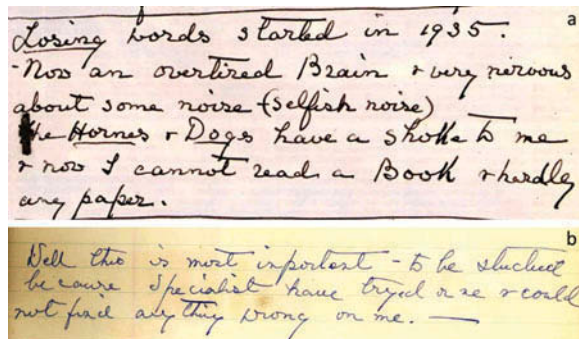 a
Losing words started in 1935.
-Now an overtired Brain & very nervous
about some noise (selfish noise)
the Hornes & Dogs have a shoke to me
& now I cannot read a Book & hardly
any paper.
b
Well this is most important - to be studied
because Specialist have tryed on me & could
not find anything wrong on me. —